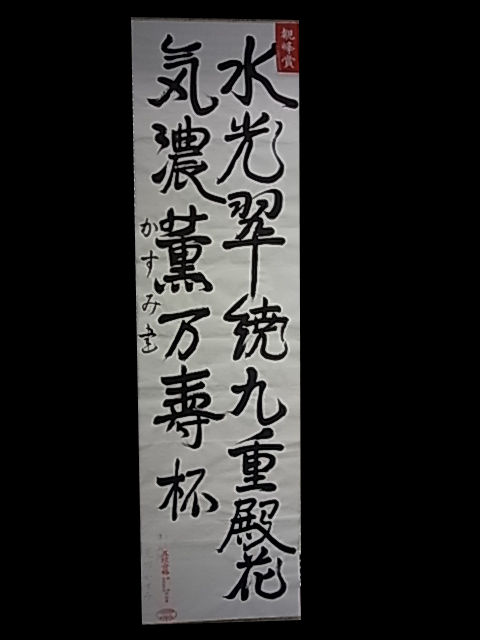 親峰賞
水光翠繞九重殿花
気濃薫万壽杯
かすみ書